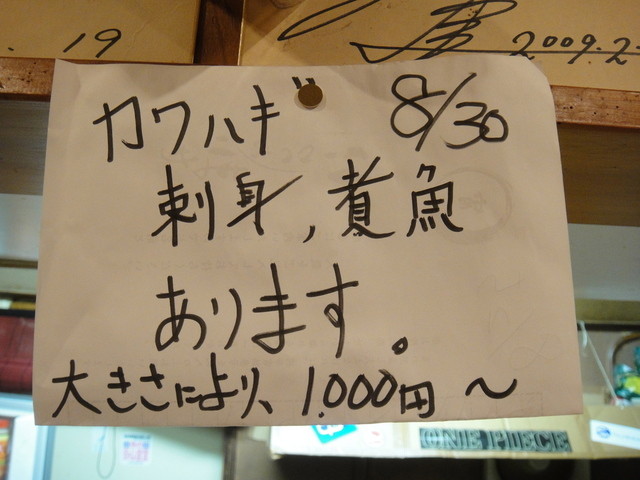 . 19
2009.2
カワハギ 8/30
刺身,煮魚
あります。
大きさにより、1.000円～
ONE PIECE